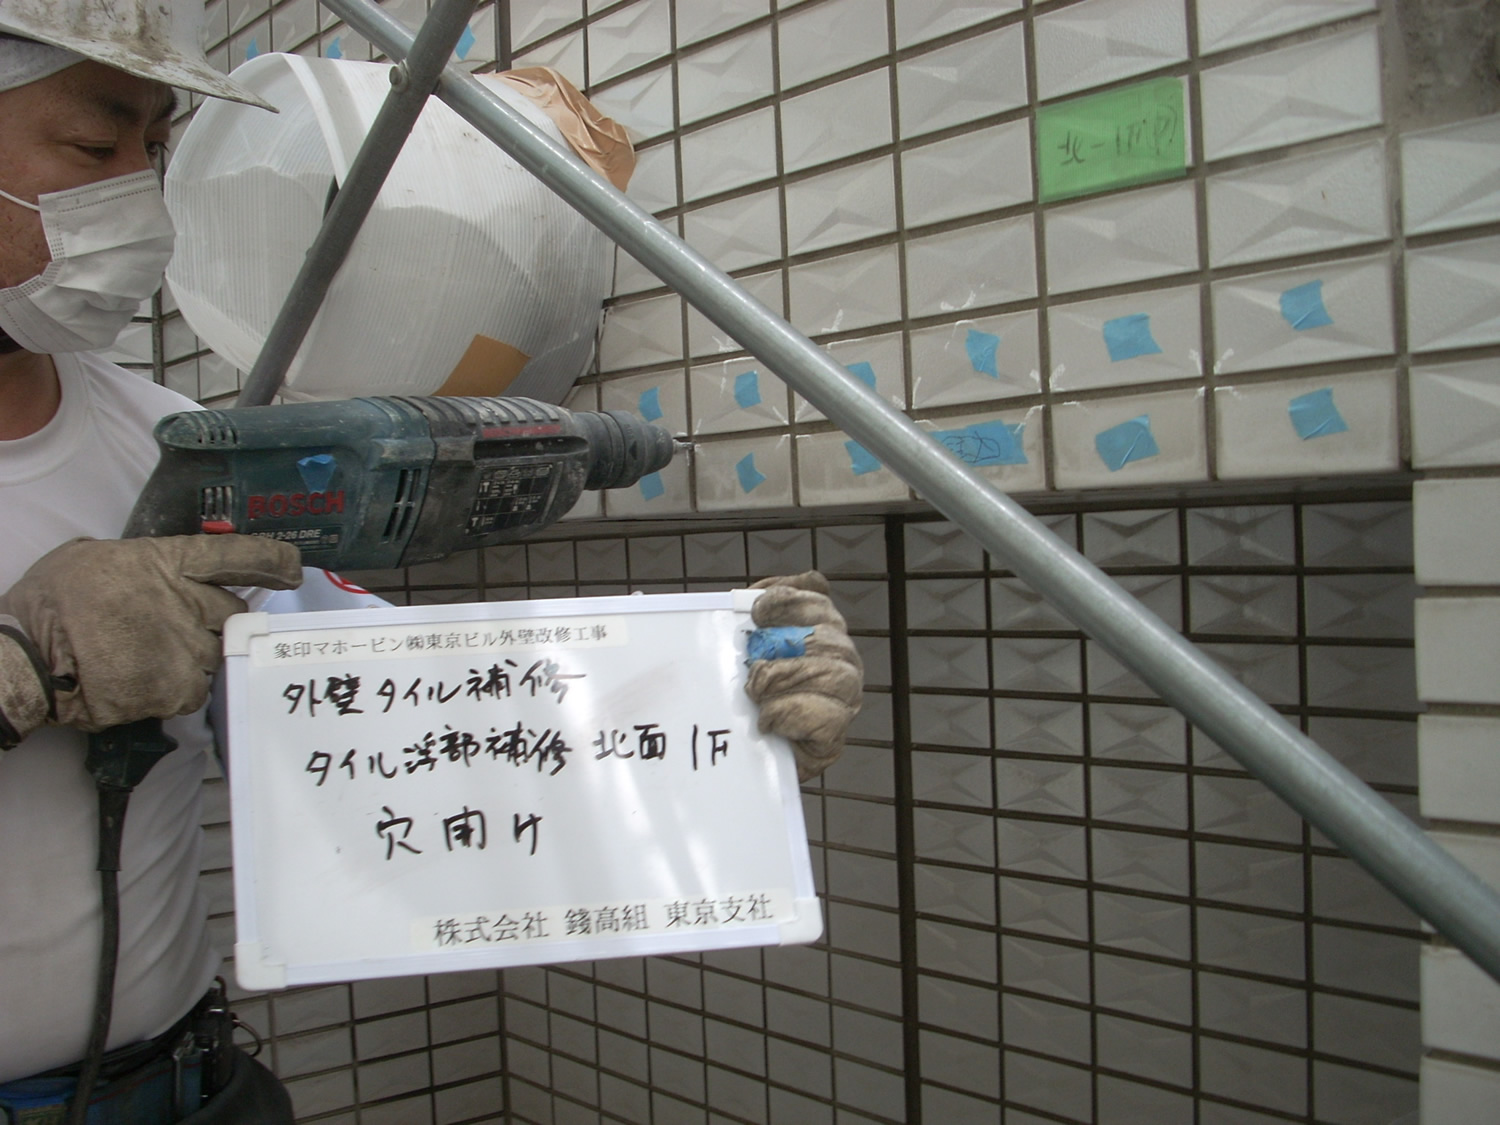 北-1F(P)
BOSCH
GBH 2-26 DRE
象印マホービン㈱東京ビル外壁改修工事
外壁タイル補修
タイル浮部補修 北面 1F
穴開け
株式会社 錢高組 東京支社